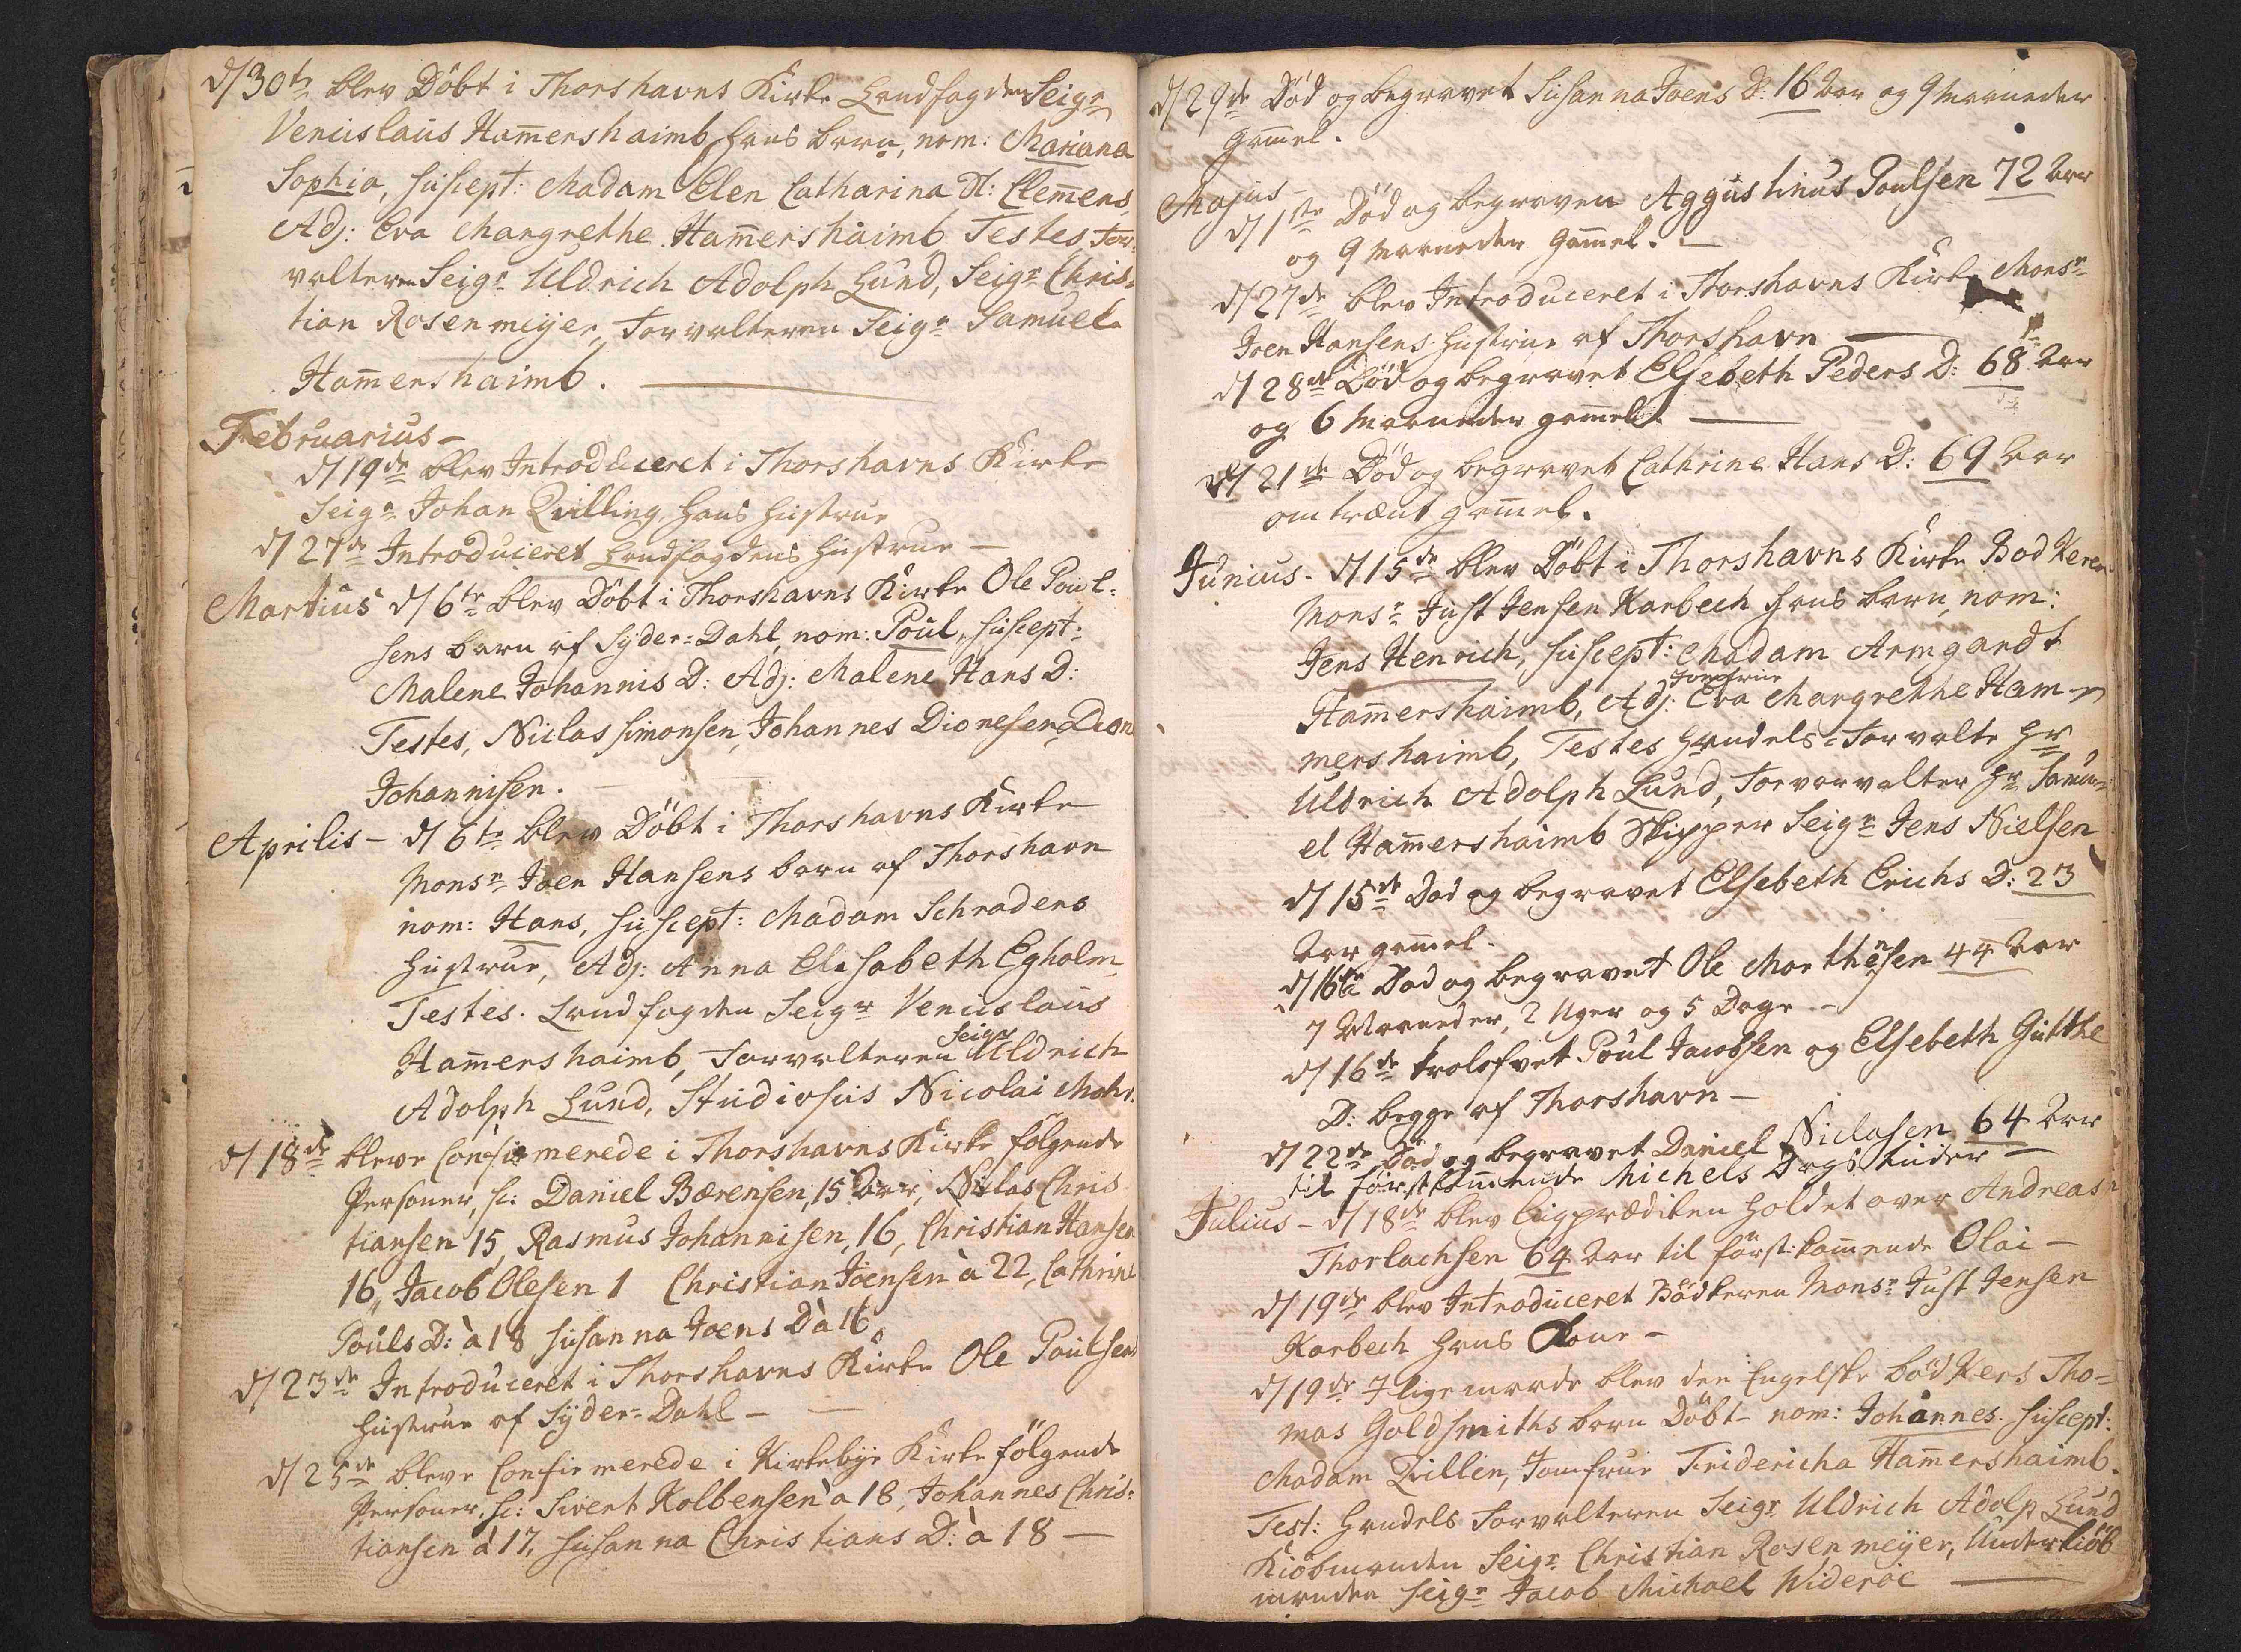 d/ 30te blev Döbt i Thorshavns Kirke Landfogden Seigr
Venislaus Ham̄ershaimb hans barn, nom: Mariana
Sophia, suscept: Madam Elen Catharina Sl: Clem̄ens
Adj: Eva Margrethe Ham̄ershaimb Testes For:
valteren Seigr Uldrich Adolph Lund, Seigr Chris:
tian Rosenmeÿer, Forvalteren Seigr Samuel
Ham̄ershaimb.
Februarius –
d/ 19de blev Introduceret i Thorshavns Kirke
Seigr Johan Zvilling hans hustrue
d/ 27de Introduceret Landfogdens hustrue –
Martius d/ 6te blev Döbt i Thorshavns Kirke Ole Poul:
sens barn af Syder=Dahl, nom: Poul, suscept:
Malene Johannis D: Adj: Malene Hans D:
Testes, Niclas simonsen, Johannes Dionesen, Dion
Johannisen.
Aprilis – d/ 6te blev Döbt i Thorshavns Kirke
Monsr Joen Hansens barn af Thorshavn
nom: Hans, suscept: Madam Schraders
hustrue, Adj: Anna Elisabeth Egholm
Testes. Landfogden Seigr Venislaus
Ham̄ershaimb, Forvalteren Seigr Uldrich
Adolph Lund, Studiosus Nicolai Mohr.
d/ 18de bleve Confirmerede i Thorshavns Kirke fölgende
Personer, sc: Daniel Bærensen, 15 Aar, Niclas Chris
tiansen 15, Rasmus Johannisen, 16, Christian Hansen
16, Jacob Olesen 1 Christian Joensen à 22, Cathrine
Pouls D: à 18 susanna Joens D à 16
d/ 23de Introduceret i Thorshavns Kirke Ole Poulsens
hustrue af Syder=Dahl –
d/ 25de bleve Confirmerede i Kirkebÿe Kirke fölgende
Personer, sc: Sivert Kolbensen à 18, Johannes Chris:
tiansen à 17, susanna Christians D: à 18 –
d/ 29de Död og begravet Susanna Joens D: 16 Aar og 9 Maaneder
gam̄el.
Majus –
d/ 1ste Död og begraven Aggustinus Poulsen 72 Aar
og 9 Maaneder gam̄el. –
d/ 27de blev Introduceret i Thorshavns Kirke Monsr
Joen Hansens hustrue af Thorshavn
d/ 28de Död og begravet Elsebeth Peders D: 68 Aar
og 6 Maaneder gam̄el. –
d/ 21de Död og begravet Cathrine Hans D: 69 Aar
omtrænt gam̄el.
Junius. d/ 15de blev Döbt i Thorshavns Kirke Bodkeren
Monsr Just Jensen Karbech hans barn nom:
Jens Henrich, suscept: Madam Armgardt
Ham̄ershaimb, Adj: Jomfrue Eva Margrethe Ham-
mershaimb, Testes Handels=Forvalte Hr
Uldrich Adolph Lund, Forvarvalter Hr Samu=
el Ham̄ershaimb Skipper Seigr Jens Nielsen
d/ 15de Död og begravet Elsebeth Erichs D: 23
Aar gam̄el.
d/ 16te Död og begravet Ole Morthensen 44 Aar
7 Maaneder, 2 Uger og 5 Dage –
d/ 16de trolofvet Poul Jacobsen og Elsebeth Gutthe
D: begge af Thorshavn –
d/ 22de Död og begravet Daniel Niclasen 64 Aar
til förstkom̄ende Michels Dags tider –
Julius – d/ 18de blev Liigprædiken holdet over Andreas
Thorlachsen 64 Aar til först:kom̄ende Olai –
d/ 19de blev Introduceret Bödkeren Monsr Just Jensen
Karbech hans Kone –
d/ 19de J ligemaade blev den Engelske bödkers Tho=
mas Goldsmiths barn Döbt – nom: Johannes. suscept:
Madam Zvillin, Jomfrue Fridericha Ham̄ershaimb.
Test: Handels Forvalteren Seigr Uldrich Adolp Lund
Kiöbmanden Seigr Christian Rosenmeÿer, Underkiöb
manden seigr Jacob Michael Wideröe